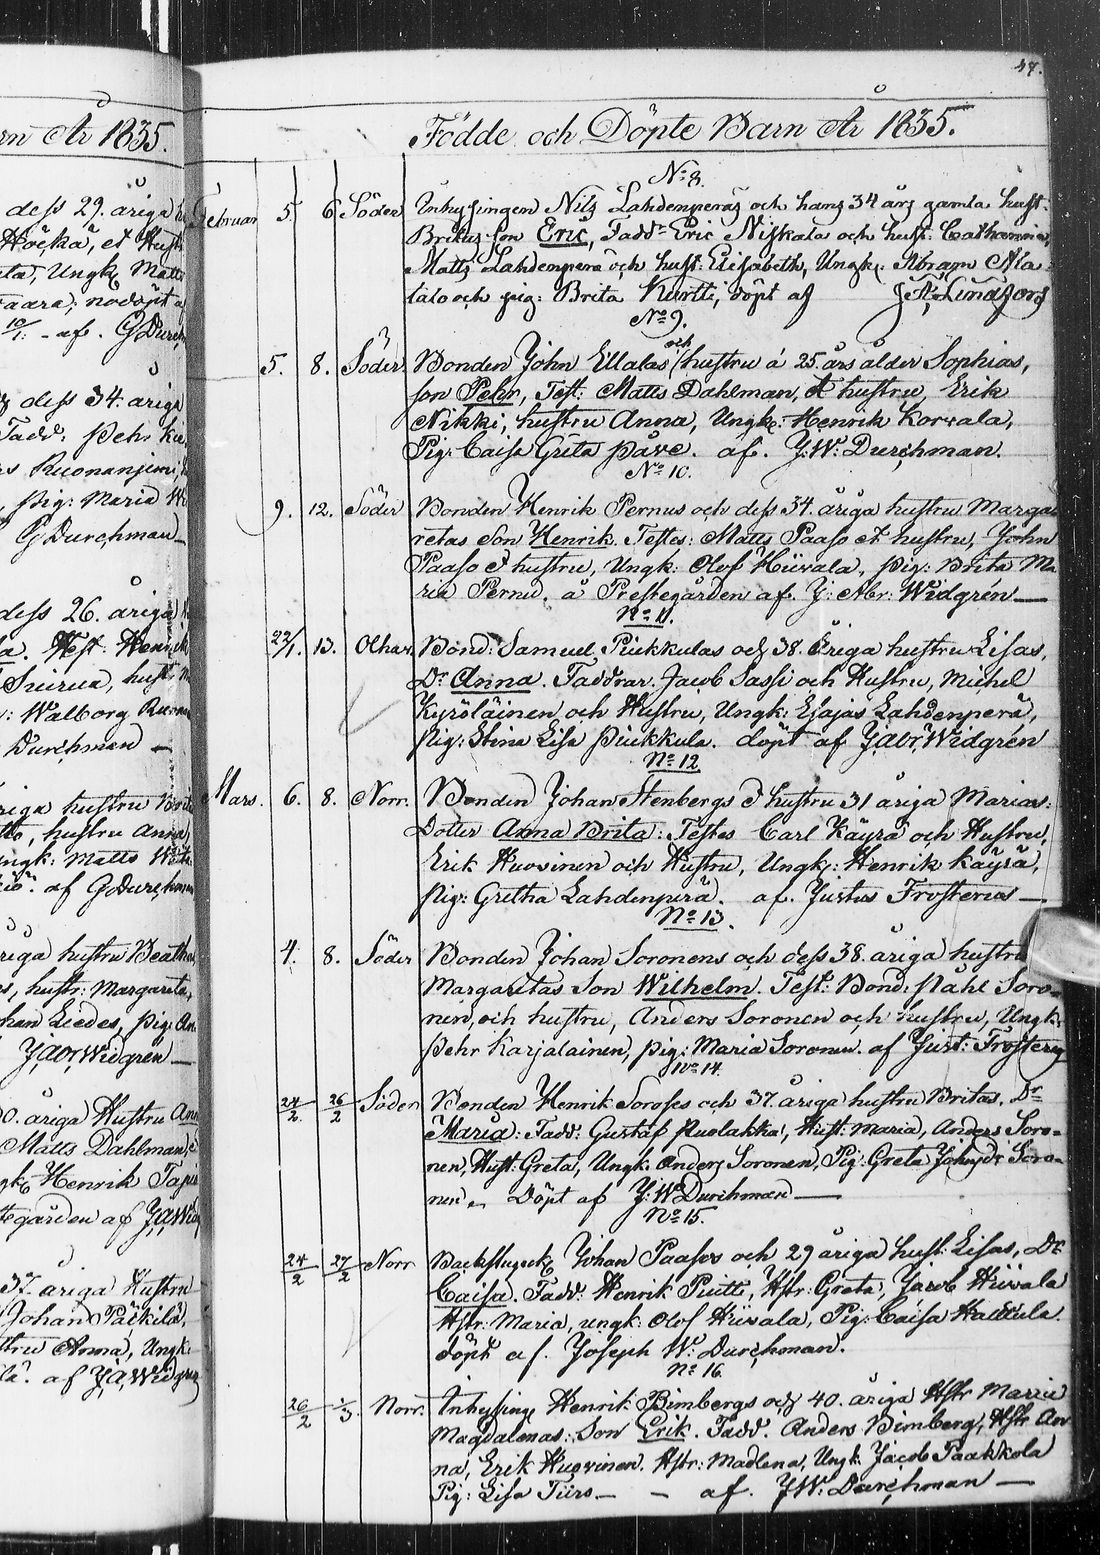 47.
rn År 1835.
Födde och Döpte Barn År 1835.
dess 29. åriga
Höckä, et Hust
eta, Ungk. Matts
vaara, nödöpt
10/1. af. G Durch
dess 34. åriga
Fadd. Pehr
Ruonanjemi,
pig: Maria
G Durchman
dess 26. åriga
Test. Henrik
Suirua, hust.
Walborg
Durchman
åriga hustru
hustru Anna
ungk: Matts
af G Durchman
åriga hustru Beatha
hustr: Margareta,
Johan Liedes, pig: An
J Abr, Widgrén
0. åriga Hustru Ann
Matts Dahlman,
Henrik
tegården af J A Wid
37. åriga Hustru
Johan Päckilä,
Anna, Ungk:
af J, A, Widgrén
No 8.
Februari 5. 6 Söder Inhysingen Nils Lahdenperäs och hans 34 års gamla hust.
Britas son Eric, Fadd. Eric Niskala och hust: Catharina,
Matts Lahdenperä och hust: Elisabeth, Ungk: Abram Ala
talo och pig: Brita Kurtti, döpt af J. A. Lindfors
No 9.
5. 8. Söder. Bonden John Ellalas och hustru á 25. års ålder Sophias,
son Pehr, Test: Matts Dahlman, et hustru, Erik
Nikki, hustru Anna, Ungk: Henrik Korvala,
Pig: Caisa Greta Påve. af. J. W. Durchman.
No 10.
9. 12. Söder Bonden Henrik Pernus och dess 34. åriga hustru Marga
retas Son Henrik. Testes: Matts Paaso et hustru, John
Paaso et hustru, Ungk: Olof Hiivala, pig: Brita Ma
ria Pernu. å Prestegården af. J: Abr: Widgrén
No 11.
22/1. 13. Olhav. Bond: Samuel Piukkulas och 38. åriga hustru Lisas,
Dr Anna. Faddrar Jacob Sassi och Hustru, Michel
Kyröläinen och Hustru, Ungk: Esajas Lahdenperä,
pig: Stina Lisa Piukkula. döpt af J Abr, Widgrén
No 12
Mars. 6. 8. Norr. Bonden Johan Stenbergs et hustru 31 åriga Marias:
Dotter Anna Brita: Testes Carl Käyrä och Hustru,
Erik Huovinen och Hustru, Ungk: Henrik Käyrä,
pig: Gretha Lahdenperä. af. Justus Frosterus
No 13.
4. 8. Söder Bonden Johan Soronens och dess 38. åriga hustru
Margaretas Son Wilhelm. Test: Bond: Påhl Soro-
nen, och hustru, Anders Soronen och hustru, Ungk:
Pehr Karjalainen, pig: Maria Soronen. af Just: Frosterus
No 14.
24/2. 26/2 Söder Bonden Henrik Sorosés och 37. åriga hustru Britas. Dr
Maria: Fadd: Gustaf Ruolakka, Hust: Maria, Anders Soro-
nen, Hust: Greta, Ungk: Anders Soronen, Pig: Greta Johansdr Soro-
nen. Döpt af J: W Durchman
No 15.
24/2 27/2 Norr Backstugek. Johan Paasos och 29 åriga hust: Lisas, Dr
Caisa. Fadd: Henrik Puitti, Hstr: Greta, Jacob Hiivala
Hstr: Maria, ungk: Olof Hiivala, Pig: Caisa Hauttula.
döpt af. Joseph W. Durchman.
No 16.
26/2 1/3. Norr. Inhysing Henrik Bimbergs och 40. åriga Hstr Maria
Magdalenas: Son Erik. Fadd. Anders Bimberg, Hstr An
na, Erik Huovinen. Hstr: Madlena, Ungk. Jacob Paakkola
Pig: Lisa Tiiro — — af. J W. Durchman